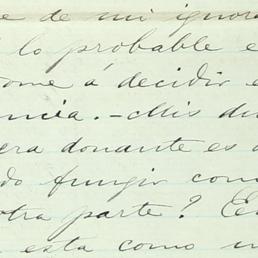 de mi ignora
lo probable e
ome á decidir e
ncia. - Mis du
era donante es a
do fungir com
otra parte? En
esta como u